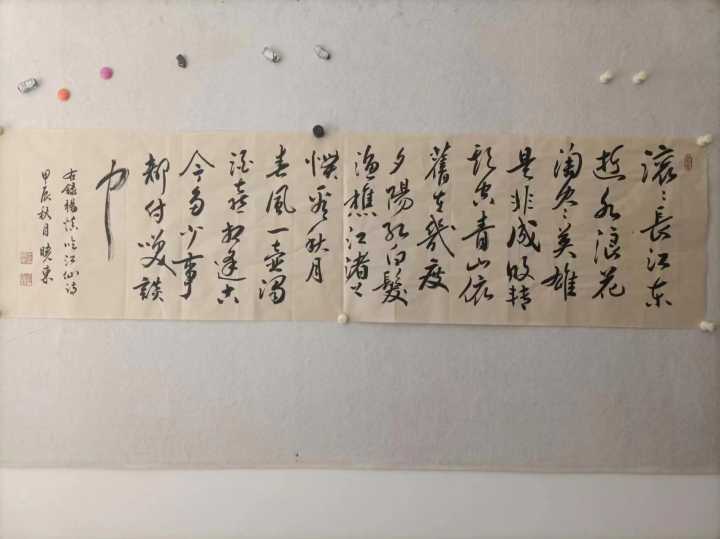 滚滚長江东
逝水浪花
淘尽英雄
是非成败转
头空青山依
舊在幾度
夕陽红白髮
渔樵江渚上
惯看秋月
春風一壶濁
酒喜相逢古
今多少事
都付笑談
中
右録楊慎临江仙诗
甲辰秋月晓東